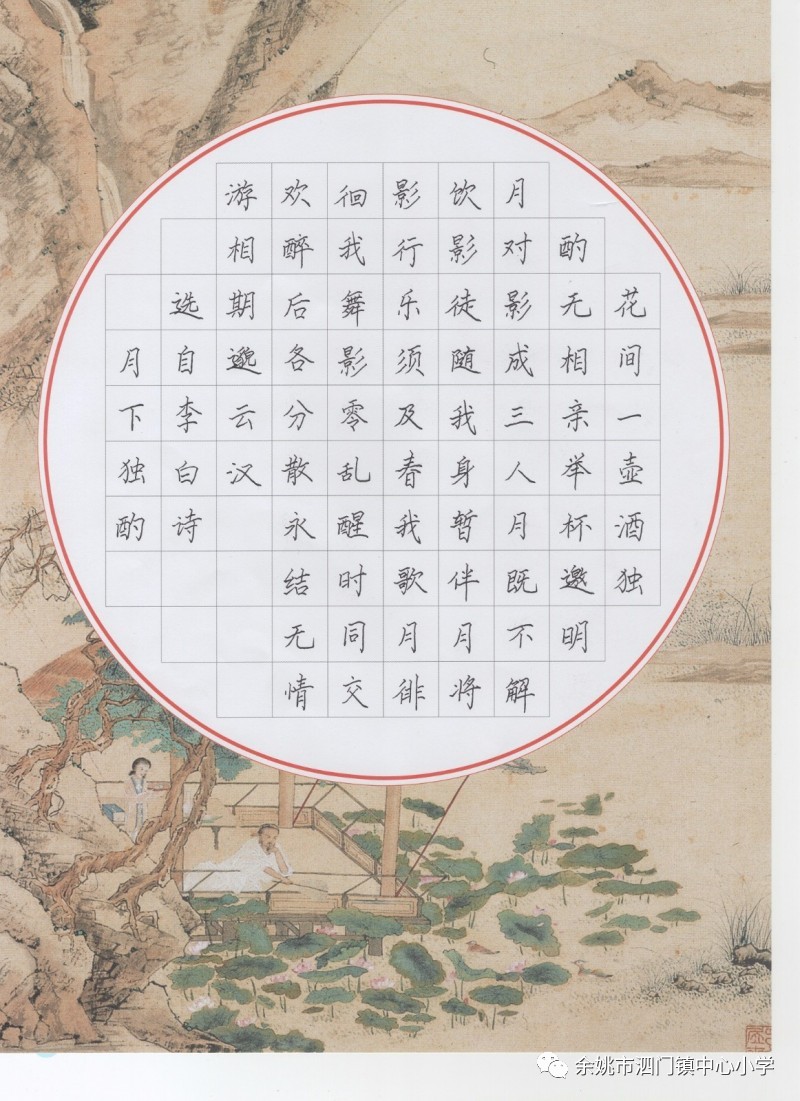 花间一壶酒独
酌无相亲举杯邀明
月对影成三人月既不解
饮影徒随我身暂伴月将
影行乐须及春我歌月徘
徊我舞影零乱醒时同交
欢醉后各分散永结无情
游相期邈云汉
选自李白诗
月下独酌
余姚市泗门镇中心小学